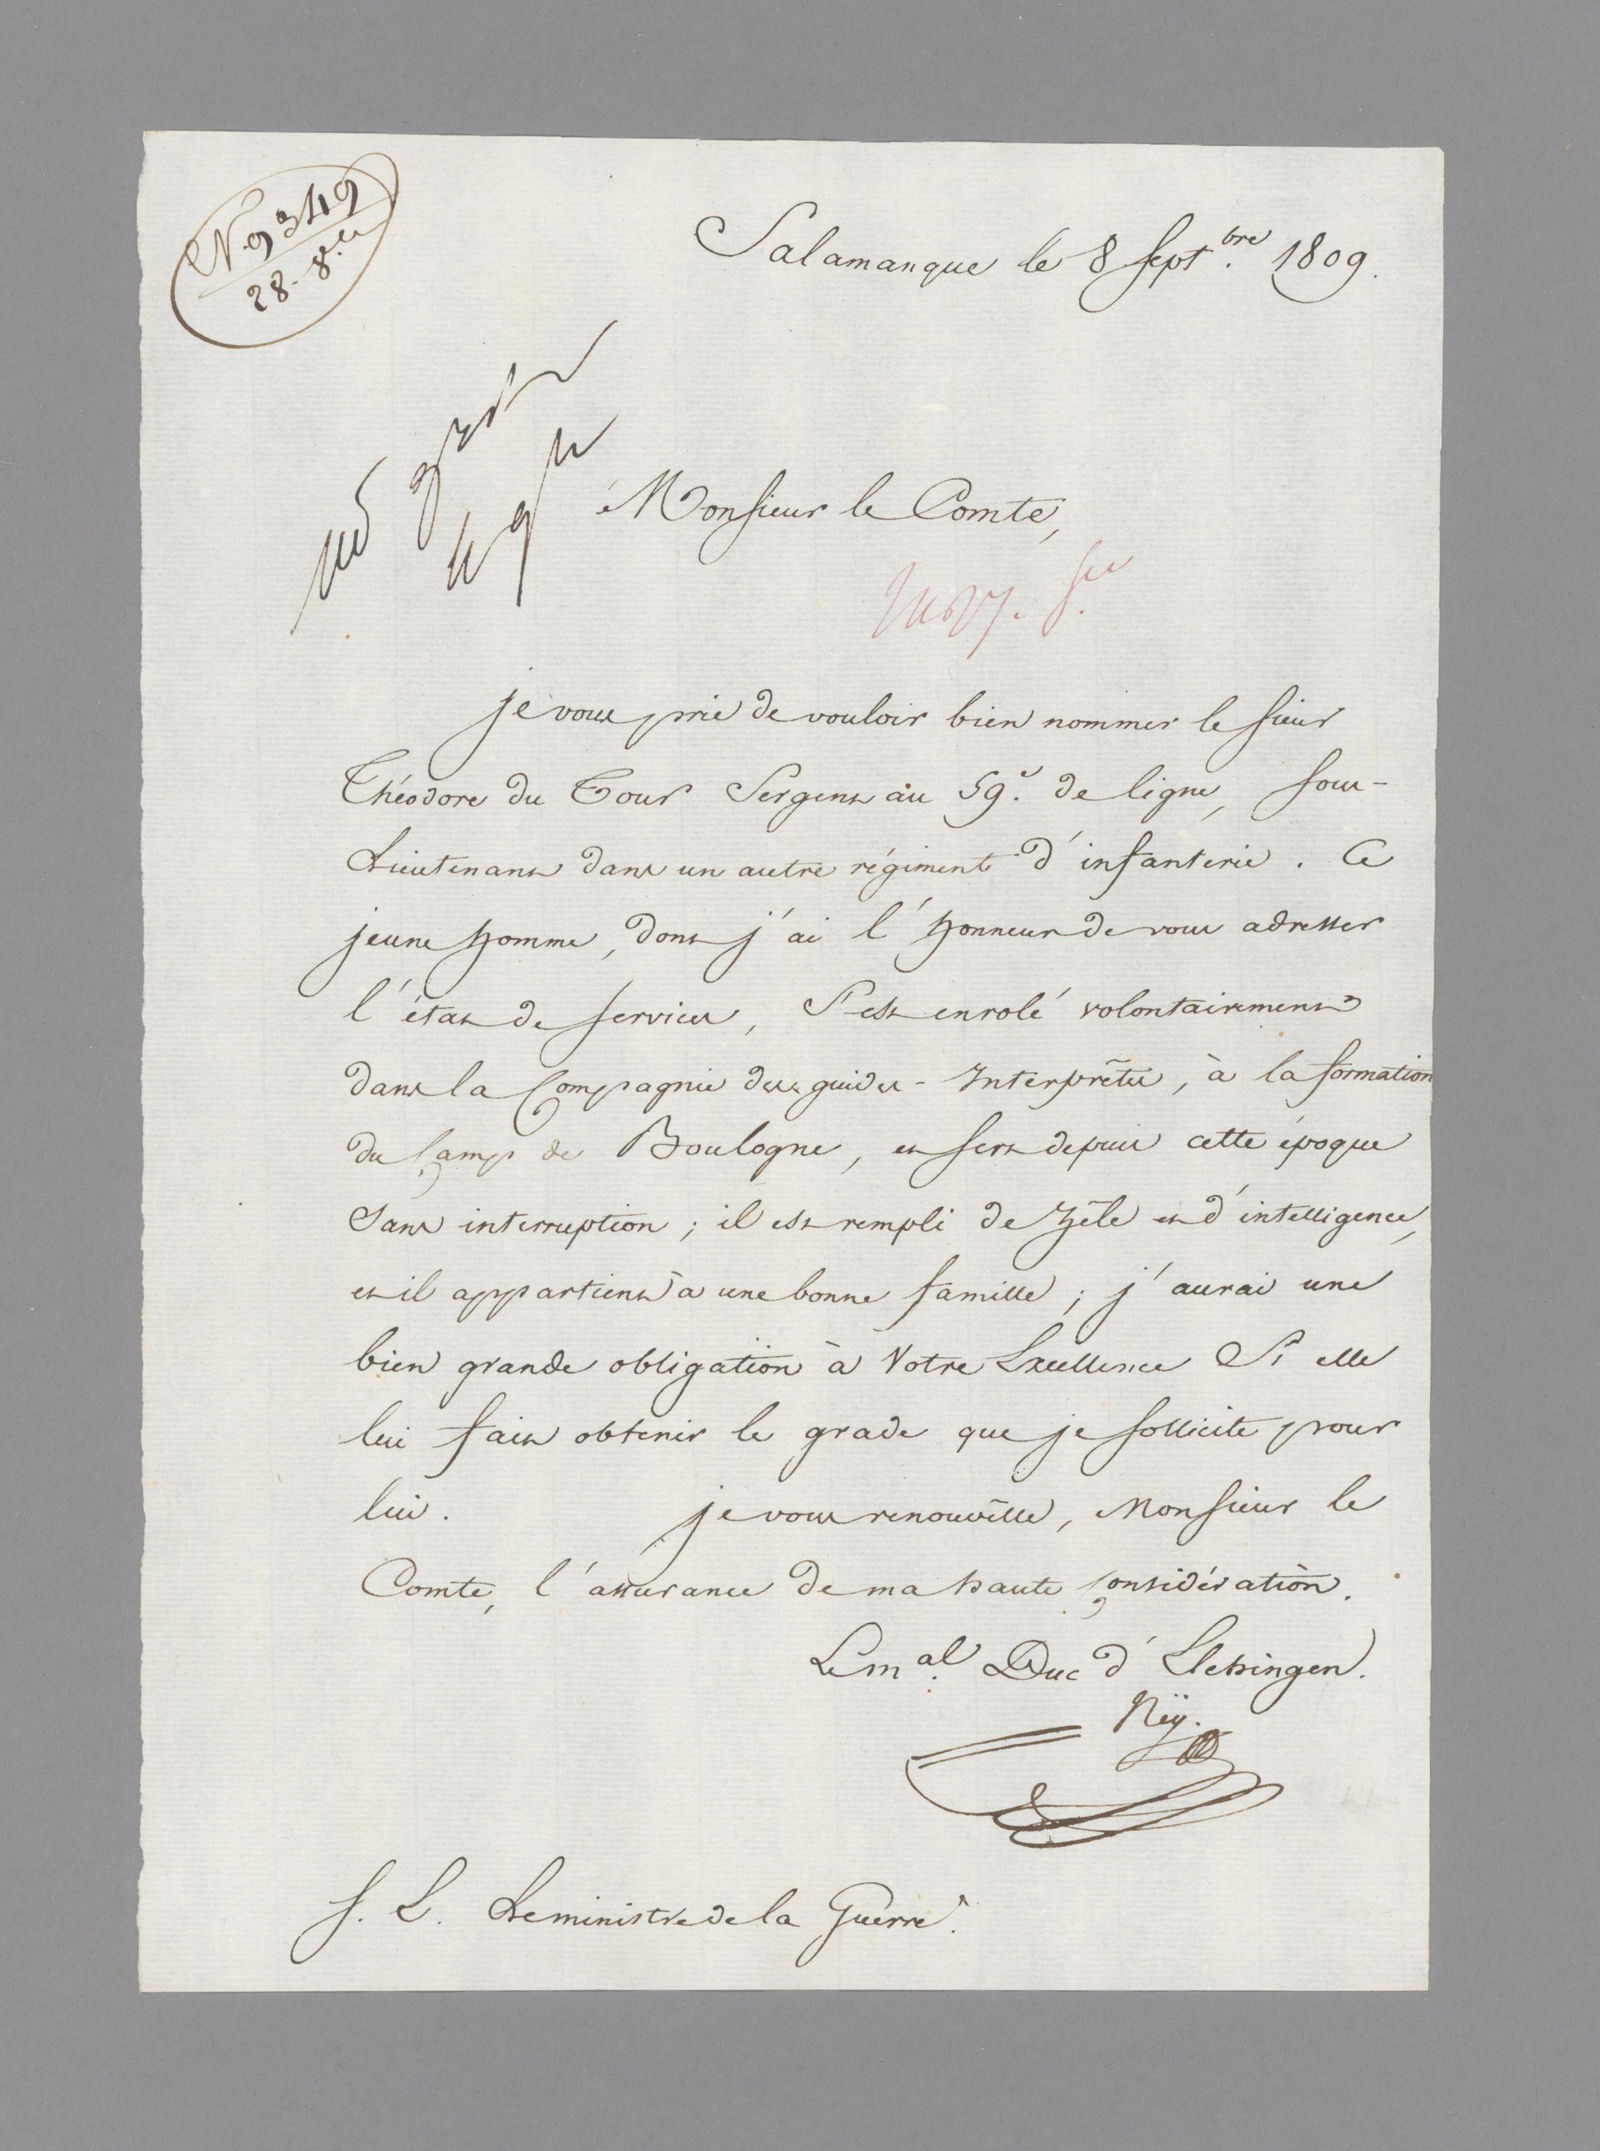 N. 9349
28. 8bre
Salamanque le 8 Septbre 1809.
Monsieur le Comte,
je vous prie de vouloir bien nommer le sieur
Théodore du Tour Sergent au 59e. de ligne, sous-
Lieutenant dans un autre régiment d'infanterie. Ce
jeune homme, dont j'ai l'honneur de vous adresser
l'état de services, S'est enrolé volontairement
dans la Compagnie des guides-Interprêtes, à la formation
du Camp de Boulogne, et sert depuis cette époque
Sans interruption; il est rempli de zêle et d'intelligence,
et il appartient à une bonne famille; j'aurai une
bien grande obligation à Votre Excellence Si elle
lui fait obtenir le grade que je sollicite pour
lui. je vous renouvelle, Monsieur le
Comte, l'assurance de ma haute Considération.
Le mal. Duc d'Elchingen.
Ney.
S. E. Le ministre de la Guerre.